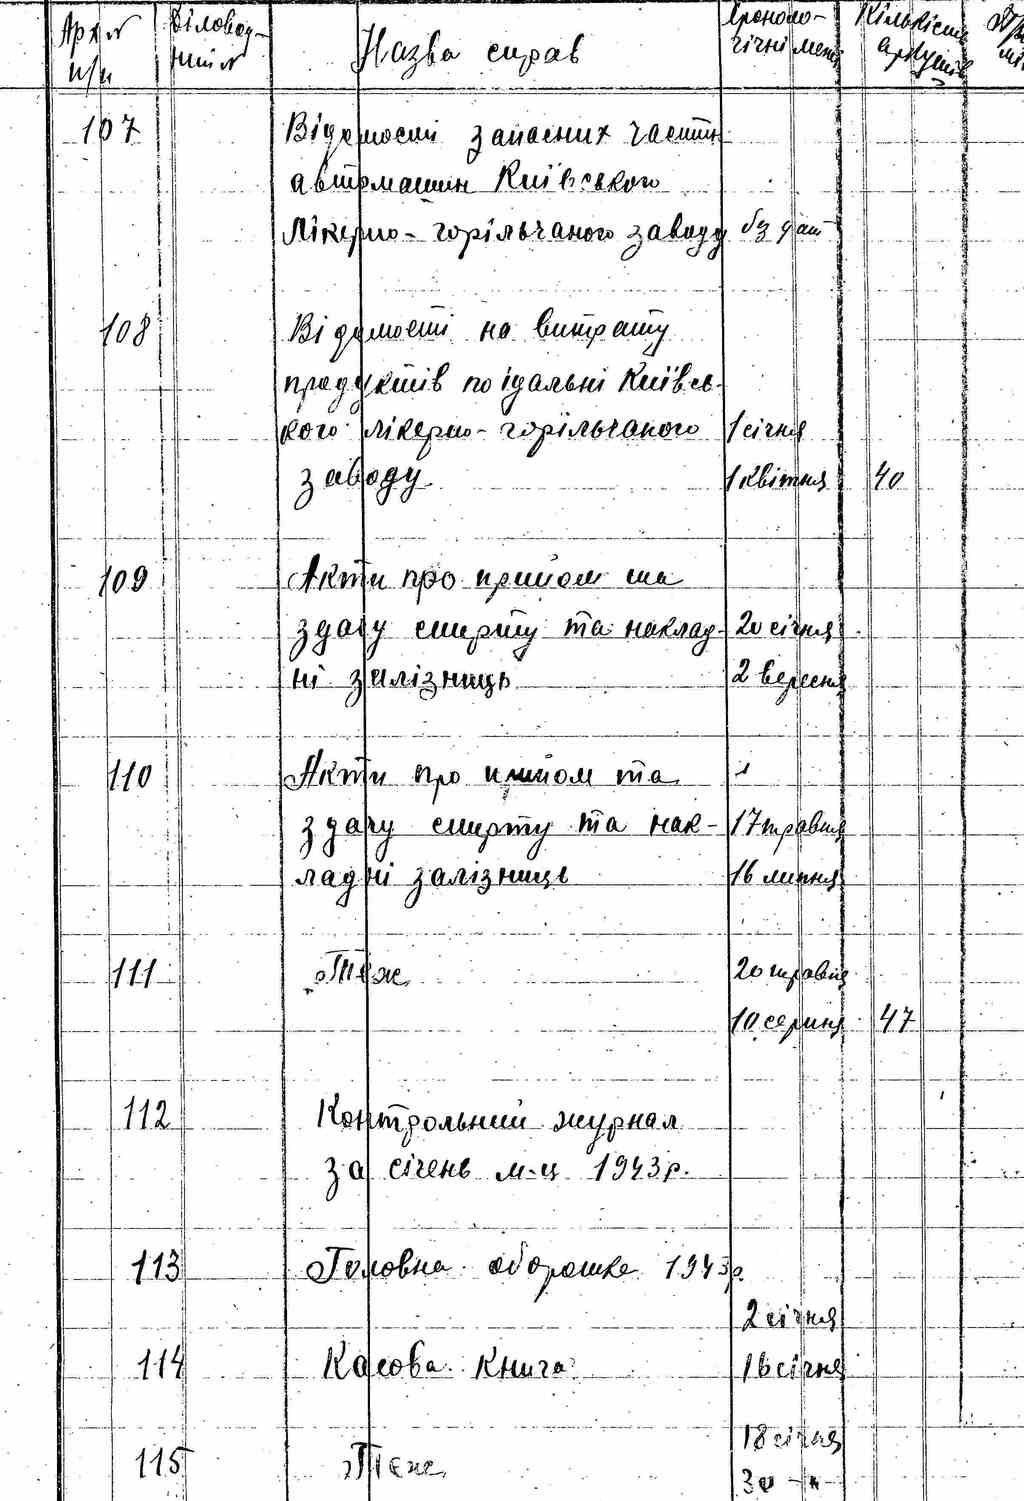 Арх № Діловод- Назва справ Хроноло- Кількість
п/п ний № гічні межі аркушів
107 Відомості запасних частин
автомашин Київського
Лікерно-горільчаного заводу без дат
108 Відомості на витрату
продуктів по їдальні Київсь-
кого лікерно-горільчаного 1 січня
заводу 1 квітня 40
109 Акти про прийом та
здачу спирту та наклад- 20 січня
ні залізниць 2 вересня
110 Акти про прийом та
здачу спирту та нак- 17 травня
ладні залізниць 16 липня
111 Теж 20 травня
10 серпня 47
112 Контрольний журнал
за січень м-ц 1943 р.
113 Головна оборотка 1943 р.
2 січня
114 Касова книга 16 січня
18 січня
115 Теж 30 -"-